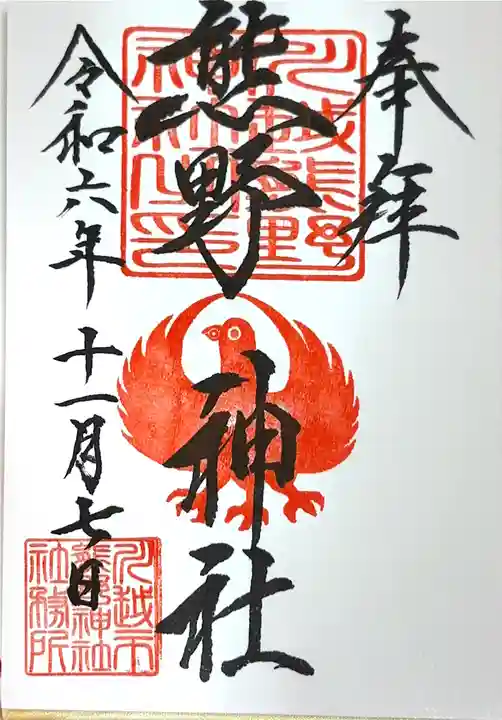 奉拝
熊野神社
川越熊野
神社之印
令和六年十一月七日
川越市
熊野神社
社務所